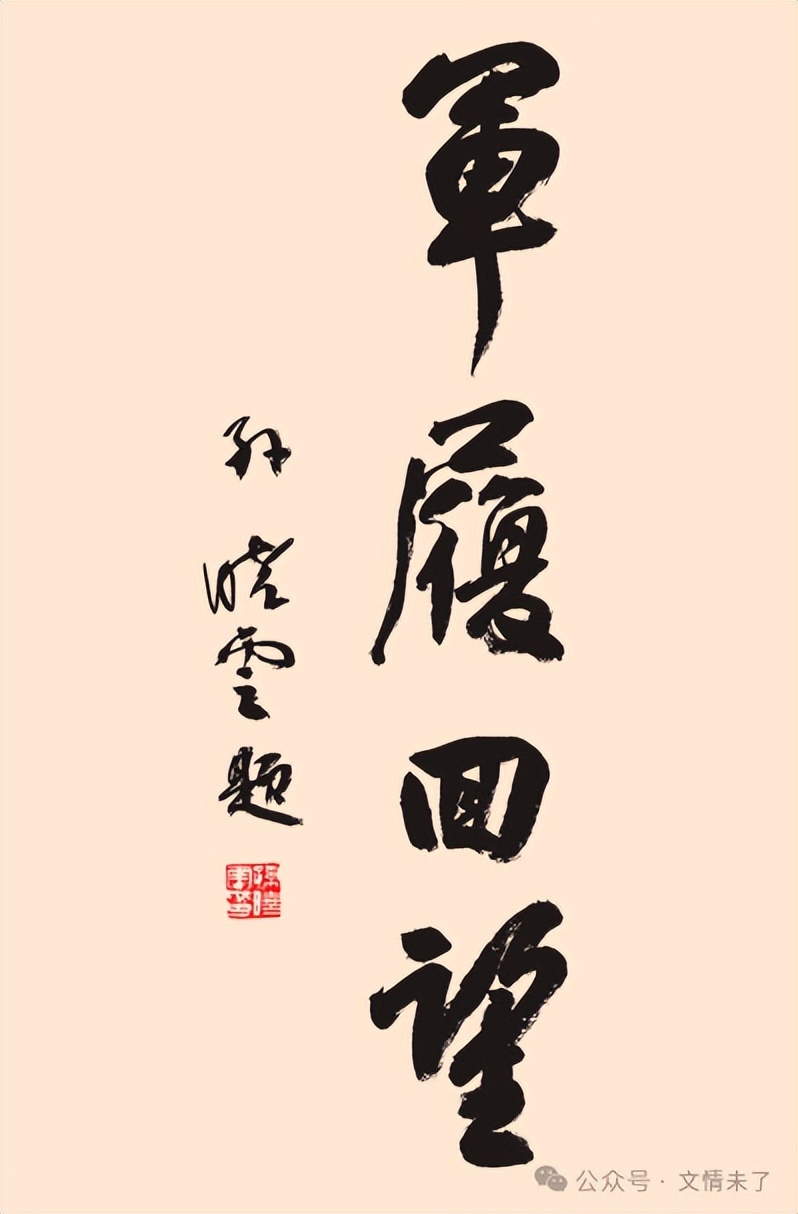 軍履回望
孙晓云题
公众号·文情未了